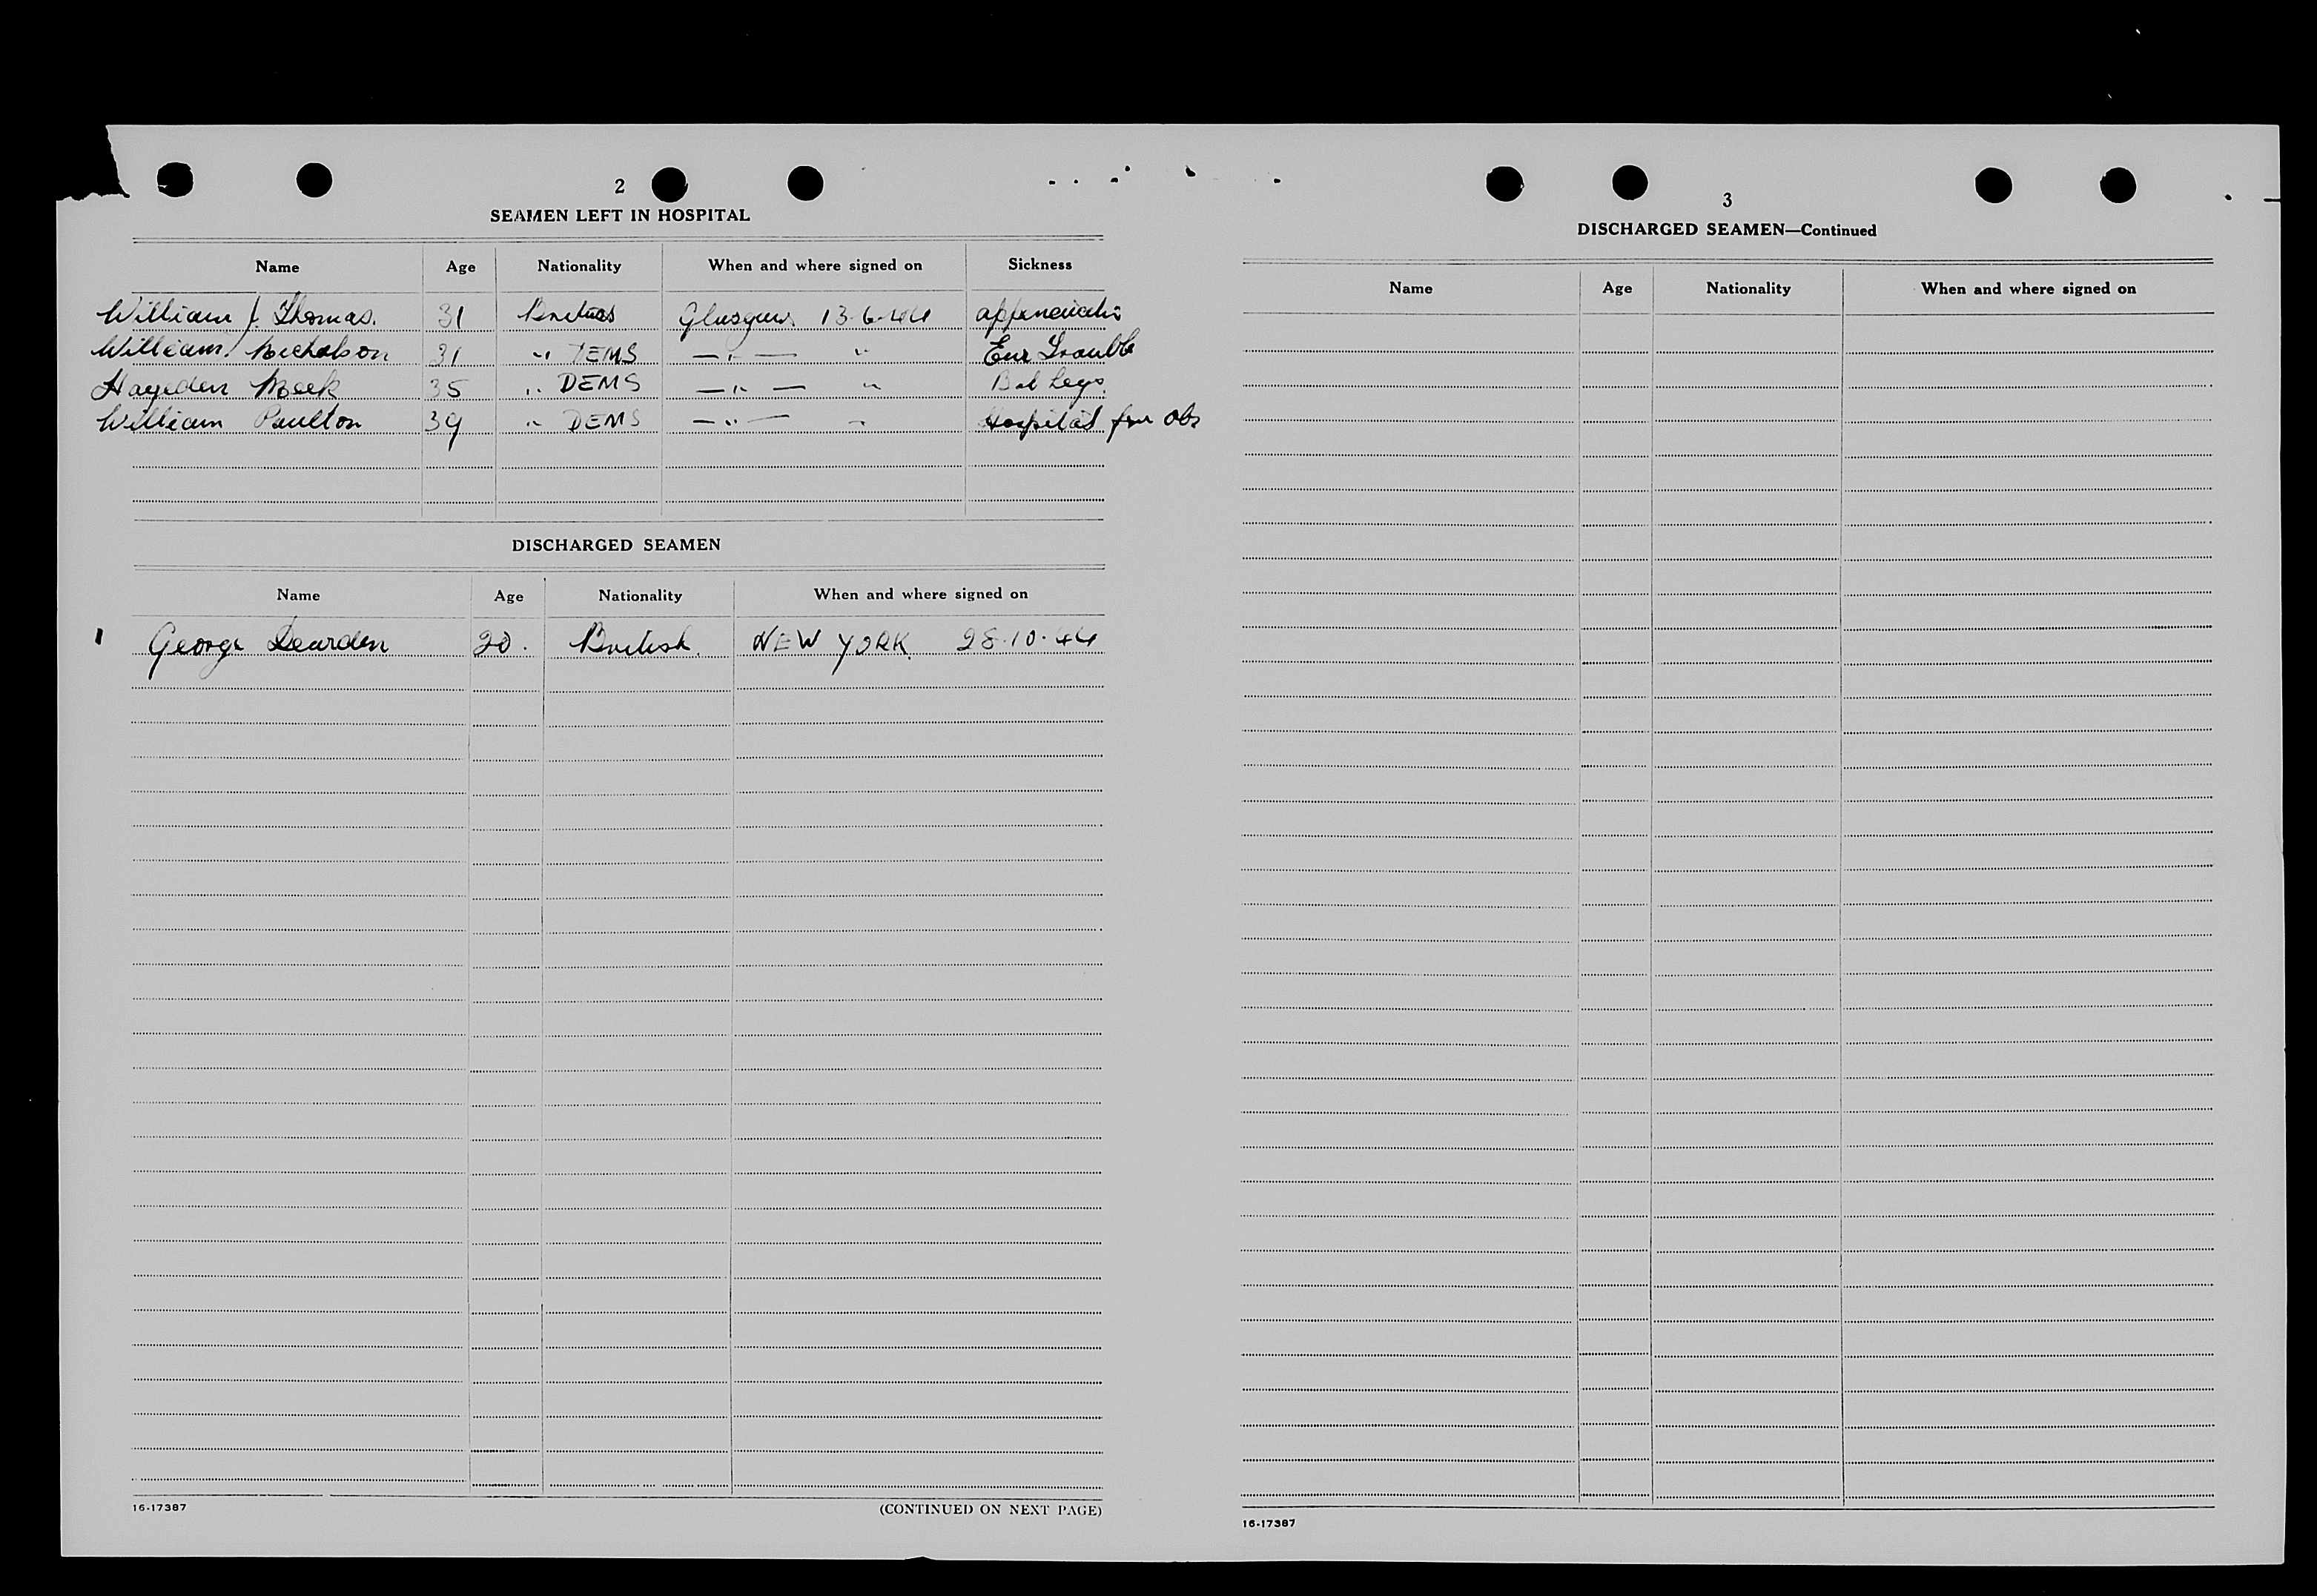 2
SEAMEN LEFT IN HOSPITAL
Name Age Nationality When and where signed on Sickness
William J. Thomas. 31 Glasgow 13-6-44
William Nicholson 31 " DEMS — " — " Ear Trouble
Hayeden Meek 35 " DEMS — " — " Bad Legs.
William Poulton 39 " DEMS — " — " Hospital for Obs
DISCHARGED SEAMEN
Name Age Nationality When and where signed on
George Dearden 20. British. NEW YORK. 28.10.44
16-17387
(CONTINUED ON NEXT PAGE)
3
DISCHARGED SEAMEN—Continued
Name Age Nationality When and where signed on
16-17387